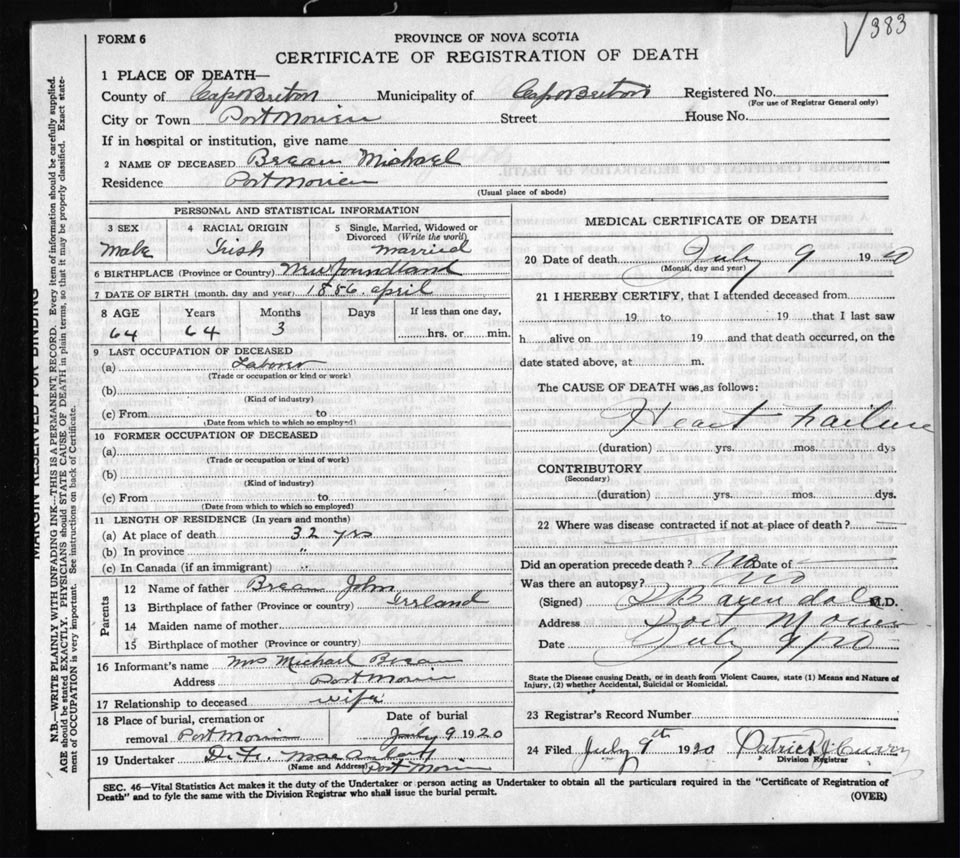 √383
FORM 6
PROVINCE OF NOVA SCOTIA
CERTIFICATE OF REGISTRATION OF DEATH
1 PLACE OF DEATH—
County of Cape Breton Municipality of Cape Breton Registered No.
(For use of Registrar General only)
City or Town Port Morien Street House No.
If in hospital or institution, give name
2 NAME OF DECEASED Brean Michael
Residence Port Morien
(Usual place of abode)
PERSONAL AND STATISTICAL INFORMATION
3 SEX 4 RACIAL ORIGIN 5 Single, Married, Widowed or Divorced (Write the word)
Male Irish married
6 BIRTHPLACE (Province or Country) Newfoundland
7 DATE OF BIRTH (month, day and year) 1856 april
8 AGE Years Months Days If less than one day,
64 64 3 hrs. or min.
9 LAST OCCUPATION OF DECEASED
(a) Laborer
(Trade or occupation or kind or work)
(b)
(Kind of industry)
(c) From to
(Date from which to which so employed)
10 FORMER OCCUPATION OF DECEASED
(a)
(Trade or occupation or kind or work)
(b)
(Kind of industry)
(c) From to
(Date from which to which so employed)
11 LENGTH OF RESIDENCE (In years and months)
(a) At place of death 32 yrs
(b) In province "
(c) In Canada (if an immigrant) "
Parents
12 Name of father Brean John
13 Birthplace of father (Province or country) Irrland
14 Maiden name of mother
15 Birthplace of mother (Province or country)
16 Informant's name Mrs Michael Brean
Address Port Morien
17 Relationship to deceased wife
18 Place of burial, cremation or removal Port Morien Date of burial July 9 1920
19 Undertaker D. F.
(Name and Address) Port Morien
MEDICAL CERTIFICATE OF DEATH
20 Date of death July 9 1920
(Month, day and year)
21 I HEREBY CERTIFY, that I attended deceased from
19 to 19 that I last saw
h alive on 19 and that death occurred, on the
date stated above, at m.
The CAUSE OF DEATH was as follows:
Heart Failure
(duration) yrs. mos. dys
CONTRIBUTORY
(Secondary)
(duration) yrs. mos. dys.
22 Where was disease contracted if not at place of death?
Did an operation precede death? No Date of
Was there an autopsy? No
(Signed) M.D.
Address Port Morien
Date July 9/20
State the Disease causing Death, or in death from Violent Causes, state (1) Means and Nature of
Injury, (2) whether Accidental, Suicidal or Homicidal.
23 Registrar's Record Number
24 Filed July 9th 1920 Patrick J
Division Registrar
SEC. 46—Vital Statistics Act makes it the duty of the Undertaker or person acting as Undertaker to obtain all the particulars required in the "Certificate of Registration of
Death" and to fyle the same with the Division Registrar who shall issue the burial permit.
(OVER)
MARGIN RESERVED FOR BINDING
N.B.—WRITE PLAINLY WITH UNFADING INK—THIS IS A PERMANENT RECORD. Every item of information should be carefully supplied.
AGE should be stated EXACTLY. PHYSICIANS should STATE CAUSE OF DEATH in plain terms, so that it may be properly classified. Exact state-
ment of OCCUPATION is very important. See instructions on back of Certificate.